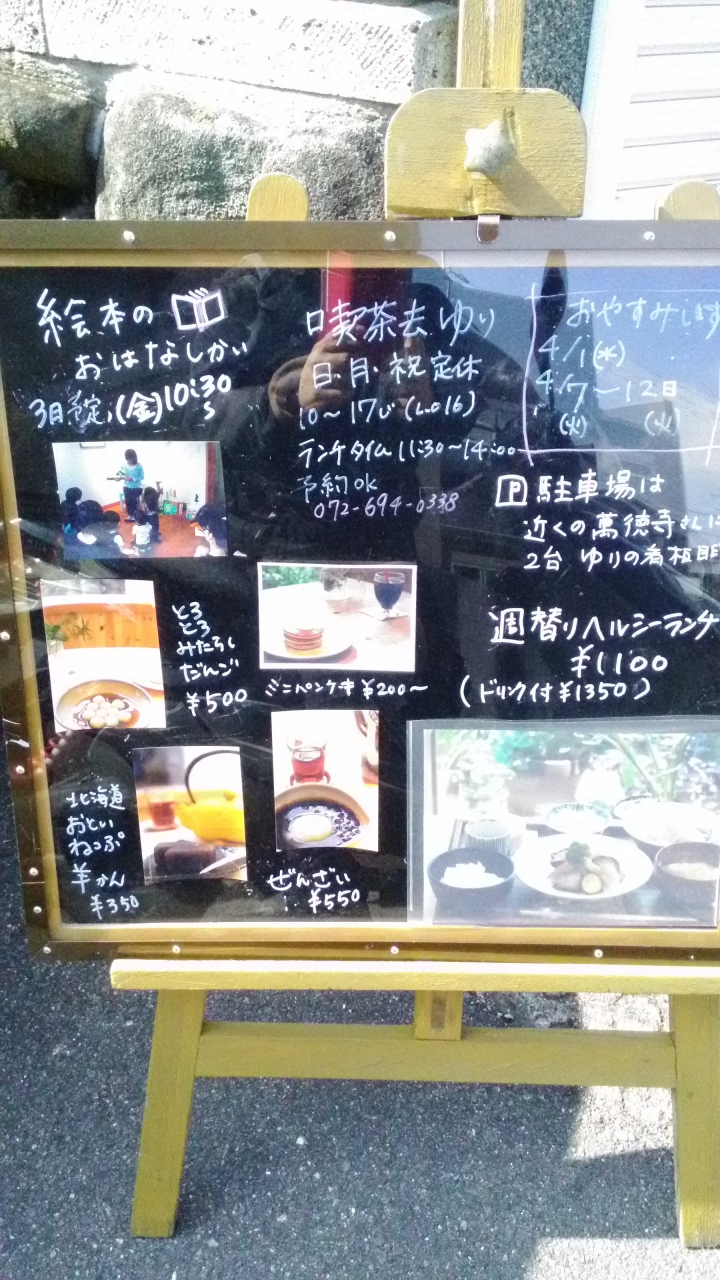 絵本の
おはなしかい
3月予定 (金)10:30
〜
喫茶去 ゆり
日・月・祝 定休
10〜17じ (L.o16)
ランチタイム 11:30〜14:00
予約OK
072-694-0338
おやすみします
4/1(水)
4/7〜12日
(火) (火)
P 駐車場は
近くの萬徳寺さんに
2台 ゆりの看板
週替りヘルシーランチ
¥1100
(ドリンク付 ¥1350)
とろ
とろ
みたらし
だんご
¥500
ミニパンケーキ ¥200〜
北海道
おとい
ねっぷ
羊かん
¥350
ぜんざい
¥550